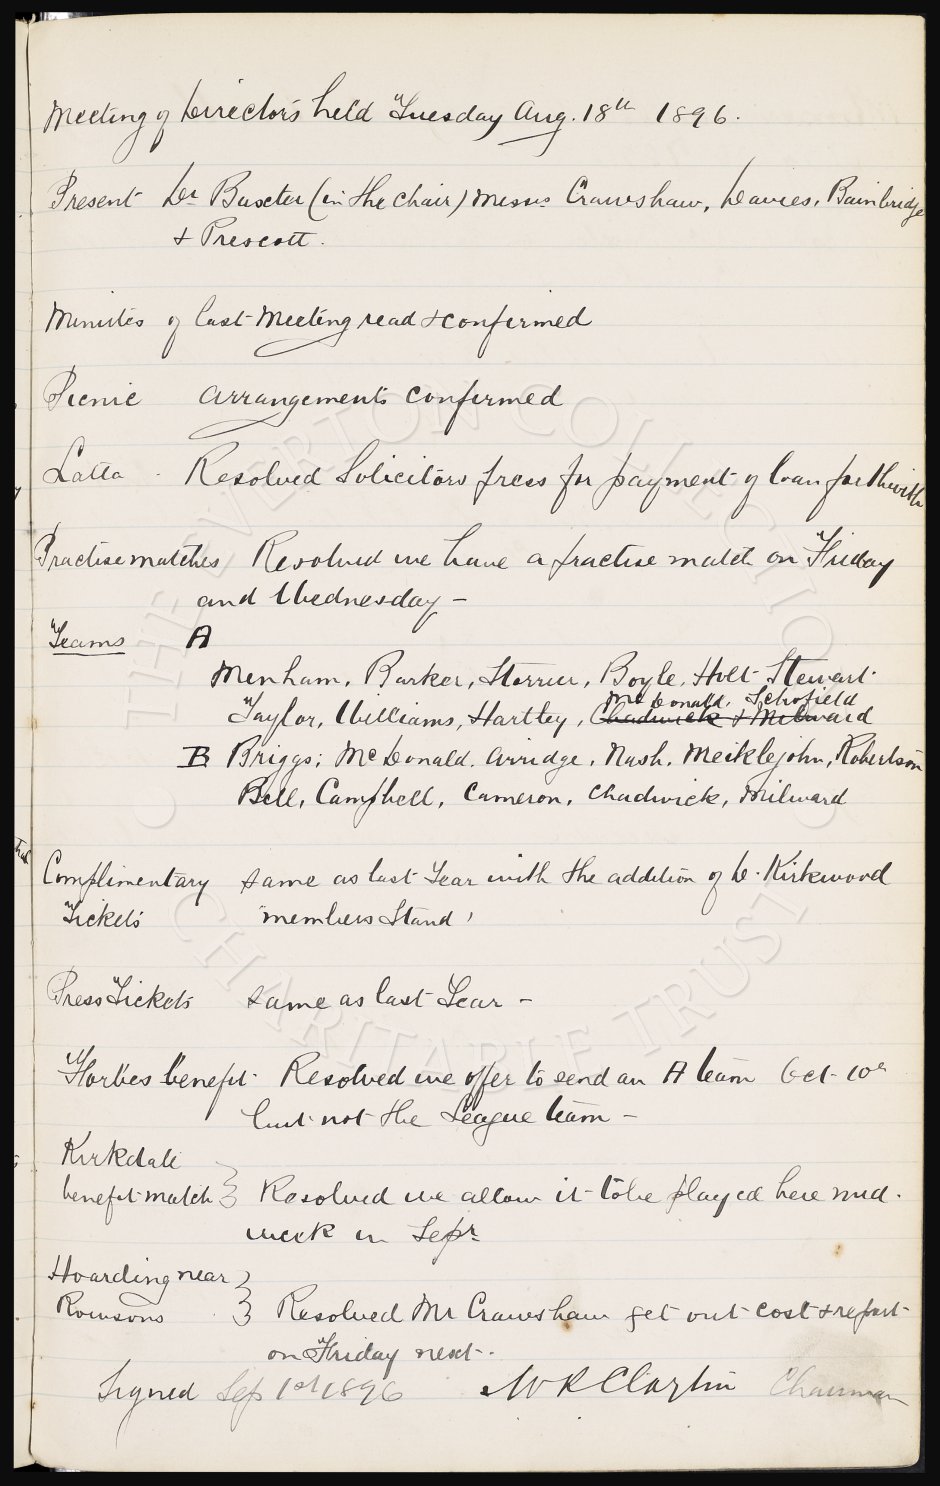 Meeting of Directors held Tuesday Aug. 18th 1896.
Present Dr Baxter (in the chair) Messrs Crawshaw, Davies, Bainbridge
& Prescott.
Minutes of last Meeting read & confirmed
Picnic arrangements confirmed
Latta - Resolved Solicitors press for payment of loan forthwith
Practise matches Resolved we have a practise match on Friday
and Wednesday -
Teams A
Menham, Barker, Storrier, Boyle, Holt Stewart
McDonald, Schofield
Taylor, Williams, Hartley, Chadwick & Milward
B Briggs; McDonald, Arridge, Nash, Meiklejohn, Robertson
Bell, Campbell, Cameron, Chadwick, Milward
Complimentary same as last Year with the addition of D. Kirkwood
Tickets 'members Stand'
Press Tickets same as last Year -
Forbes benefit Resolved we offer to send an A team Oct. 10th
but not the League team -
Kirkdale
benefit match } Resolved we allow it to be played here mid.
week in Sepr
Hoarding near }
Rowsons Resolved Mr Crawshaw get out cost & report
on Friday next.
Signed Sep 1st 1896 W R Clayton Chairman
THE EVERTON COLLECTION
CHARITABLE TRUST